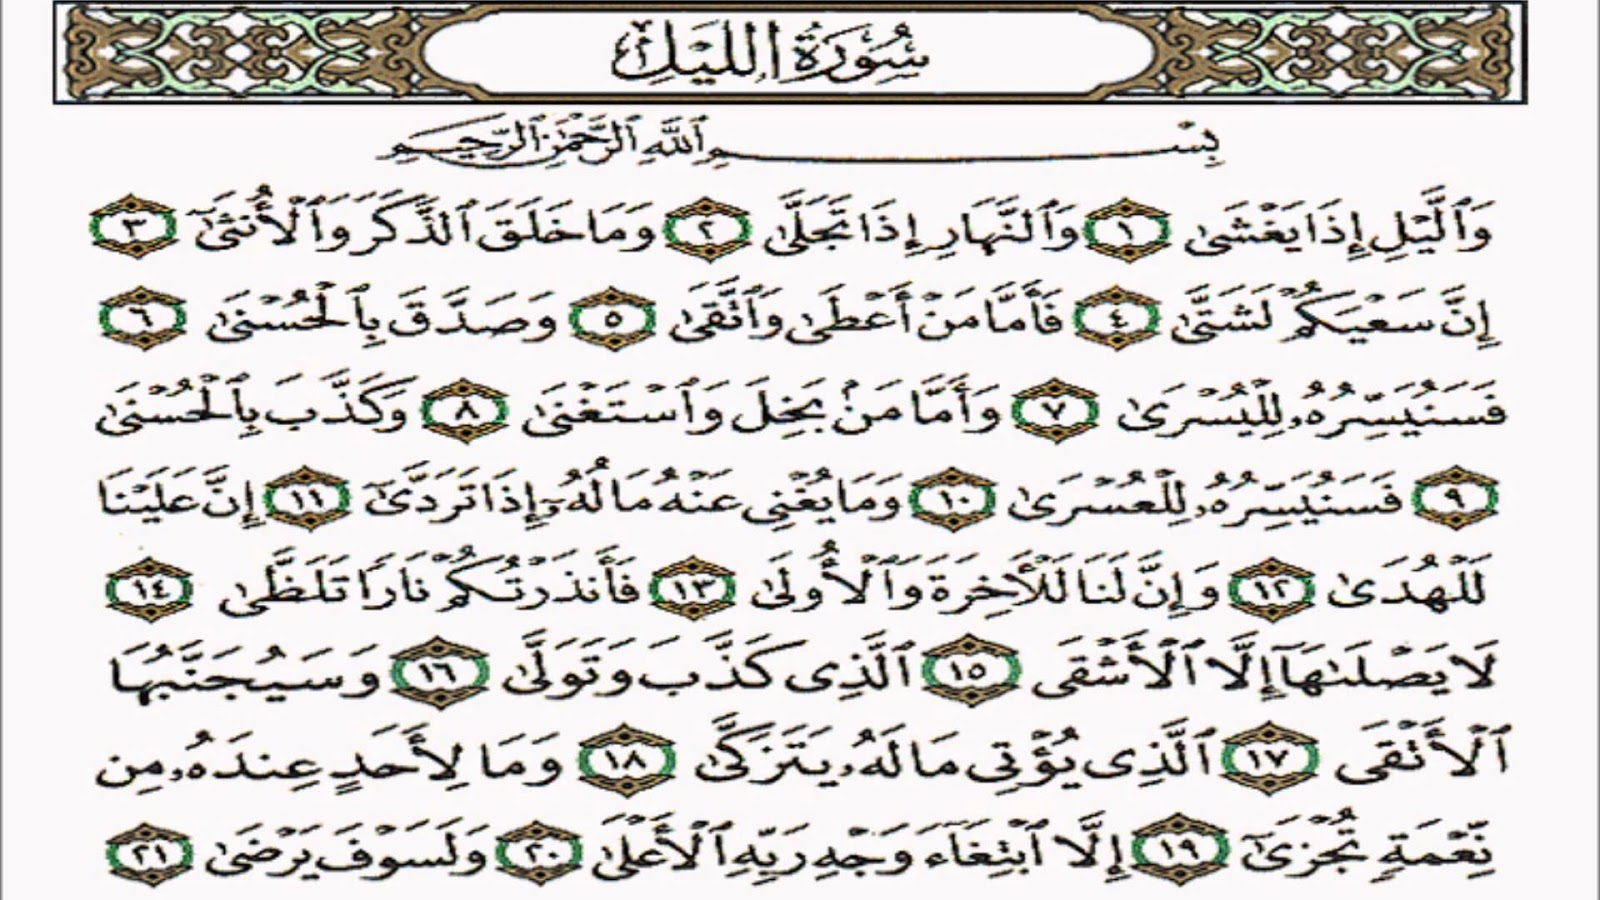 سُورَةُ اللَّيْلِ
بِسْمِ ٱللَّهِ ٱلرَّحْمَٰنِ ٱلرَّحِيمِ
وَٱلَّيْلِ إِذَا يَغْشَىٰ ١ وَٱلنَّهَارِ إِذَا تَجَلَّىٰ ٢ وَمَا خَلَقَ ٱلذَّكَرَ وَٱلْأُنثَىٰٓ ٣
إِنَّ سَعْيَكُمْ لَشَتَّىٰ ٤ فَأَمَّا مَنْ أَعْطَىٰ وَٱتَّقَىٰ ٥ وَصَدَّقَ بِٱلْحُسْنَىٰ ٦
فَسَنُيَسِّرُهُۥ لِلْيُسْرَىٰ ٧ وَأَمَّا مَنۢ بَخِلَ وَٱسْتَغْنَىٰ ٨ وَكَذَّبَ بِٱلْحُسْنَىٰ
٩ فَسَنُيَسِّرُهُۥ لِلْعُسْرَىٰ ١٠ وَمَا يُغْنِى عَنْهُ مَالُهُۥٓ إِذَا تَرَدَّىٰٓ ١١ إِنَّ عَلَيْنَا
لَلْهُدَىٰ ١٢ وَإِنَّ لَنَا لَلْـَٔاخِرَةَ وَٱلْأُولَىٰ ١٣ فَأَنذَرْتُكُمْ نَارًا تَلَظَّىٰ ١٤
لَا يَصْلَىٰهَآ إِلَّا ٱلْأَشْقَى ١٥ ٱلَّذِى كَذَّبَ وَتَوَلَّىٰ ١٦ وَسَيُجَنَّبُهَا
ٱلْأَتْقَى ١٧ ٱلَّذِى يُؤْتِى مَالَهُۥ يَتَزَكَّىٰ ١٨ وَمَا لِأَحَدٍ عِندَهُۥ مِن
نِّعْمَةٍ تُجْزَىٰٓ ١٩ إِلَّا ٱبْتِغَآءَ وَجْهِ رَبِّهِ ٱلْأَعْلَىٰ ٢٠ وَلَسَوْفَ يَرْضَىٰ ٢١